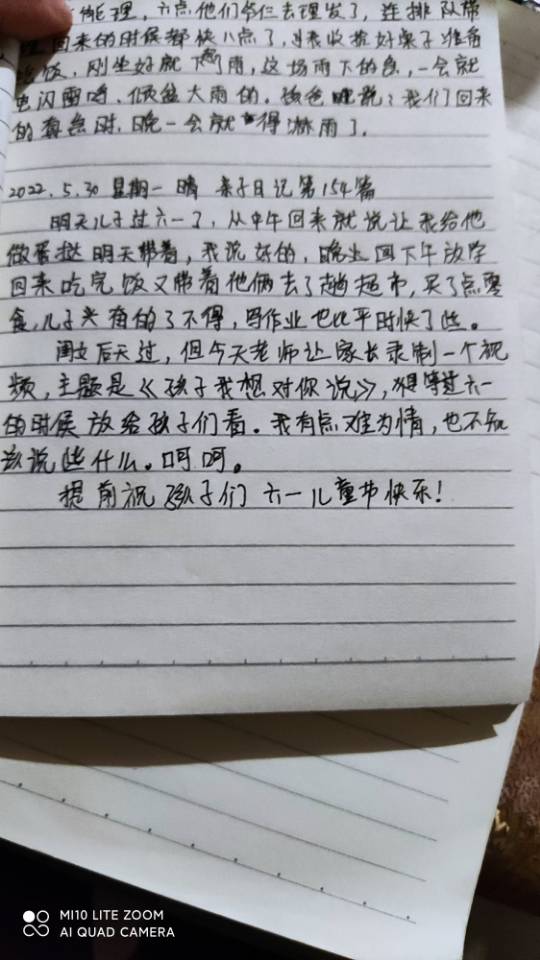 能理，六点他们爷仨去理发了，连排队带
回来的时候都快八点了，我收拾好桌子准备
吃饭，刚坐好就下雨，这场雨下的急，一会就
电闪雷鸣、倾盆大雨的。孩爸说：我们回来
的真是时，晚一会就得淋雨了。
2022.5.30 星期一 晴 亲子日记第154篇
明天儿子过六一了，从中午回来就说让我给他
做蛋挞明天带着，我说好的，晚上回下午放学
回来吃完饭又带着他俩去了趟超市，买了点零
食，儿子兴奋的了不得，写作业也比平时快了些。
闺女后天过，但今天老师让家长录制一个视
频，主题是《孩子我想对你说》，等过六一
的时候放给孩子们看。我有点难为情，也不知
该说些什么。呵呵。
提前祝孩子们六一儿童节快乐！
MI10 LITE ZOOM
AI QUAD CAMERA